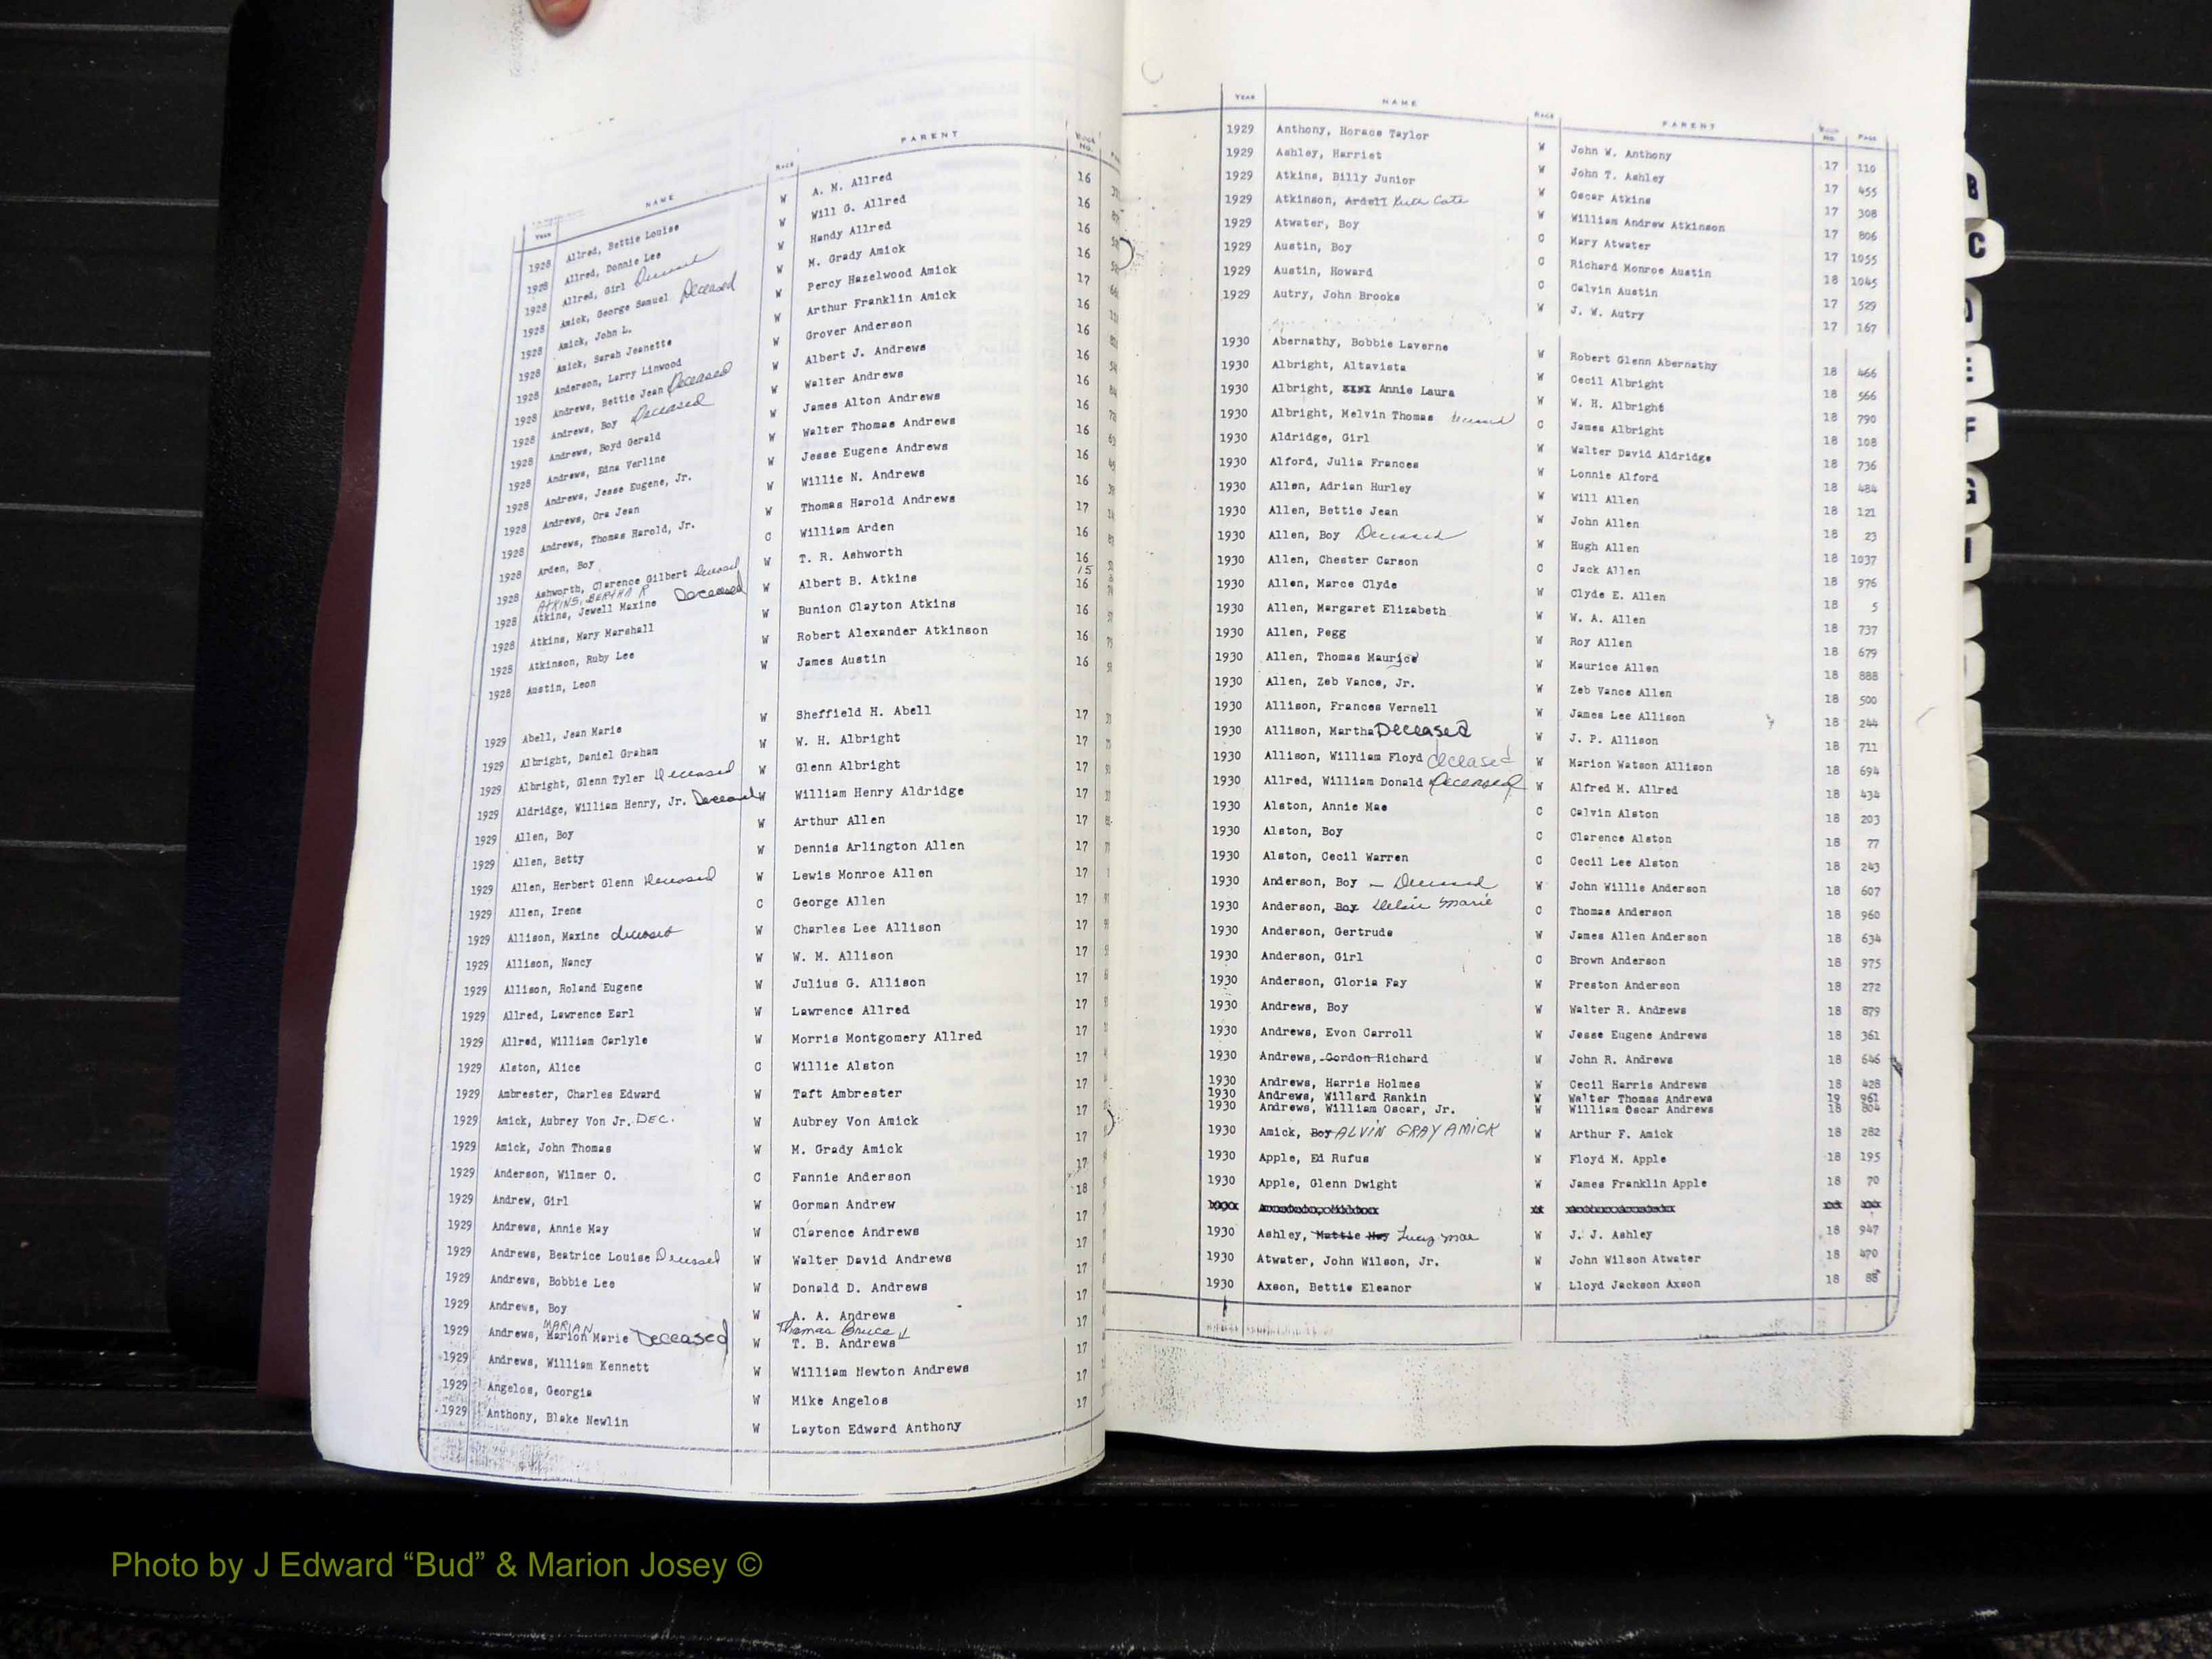 YEAR NAME RACE PARENT BOOK NO.
1928 Allred, Bettie Louise W A. M. Allred 16
1928 Allred, Donnie Lee W Will G. Allred 16
1928 Allred, Girl Deceased W Handy Allred 16
1928 Amick, George Samuel Deceased W M. Grady Amick 16
1928 Amick, John L. W Percy Hazelwood Amick 17
1928 Amick, Sarah Jeanette W Arthur Franklin Amick 16
1928 Anderson, Larry Linwood W Grover Anderson 16
1928 Andrews, Bettie Jean Deceased W Albert J. Andrews 16
1928 Andrews, Boy Deceased Walter Andrews 16
1928 Andrews, Boyd Gerald W James Alton Andrews 16
1928 Andrews, Edna Verline W Walter Thomas Andrews 16
1928 Andrews, Jesse Eugene, Jr. W Jesse Eugene Andrews 16
1928 Andrews, Ora Jean W Willie N. Andrews 16
1928 Andrews, Thomas Harold, Jr. W Thomas Harold Andrews 17
1928 Arden, Boy C William Arden 16
1928 Ashworth, Clarence Gilbert Deceased W T. R. Ashworth 16
ATKINS, BERTHA R 15
1928 Atkins, Jewell Maxine Deceased W Albert B. Atkins 16
1928 Atkins, Mary Marshall W Bunion Clayton Atkins 16
1928 Atkinson, Ruby Lee W Robert Alexander Atkinson 16
1928 Austin, Leon W James Austin 16
1929 Abell, Jean Marie W Sheffield H. Abell 17
1929 Albright, Daniel Graham W W. H. Albright 17
1929 Albright, Glenn Tyler Deceased W Glenn Albright 17
1929 Aldridge, William Henry, Jr. Deceased W William Henry Aldridge 17
1929 Allen, Boy W Arthur Allen 17
1929 Allen, Betty W Dennis Arlington Allen 17
1929 Allen, Herbert Glenn Deceased W Lewis Monroe Allen 17
1929 Allen, Irene C George Allen 17
1929 Allison, Maxine deceased W Charles Lee Allison 17
1929 Allison, Nancy W W. M. Allison 17
1929 Allison, Roland Eugene W Julius G. Allison 17
1929 Allred, Lawrence Earl W Lawrence Allred 17
1929 Allred, William Carlyle W Morris Montgomery Allred 17
1929 Alston, Alice C Willie Alston 17
1929 Ambrester, Charles Edward W Taft Ambrester 17
1929 Amick, Aubrey Von Jr. DEC. W Aubrey Von Amick 17
1929 Amick, John Thomas W M. Grady Amick 17
1929 Anderson, Wilmer O. C Fannie Anderson 17
1929 Andrew, Girl W Gorman Andrew 18
1929 Andrews, Annie May W Clarence Andrews 17
1929 Andrews, Beatrice Louise Deceased W Walter David Andrews 17
1929 Andrews, Bobbie Lee W Donald D. Andrews 17
1929 Andrews, Boy W A. A. Andrews 17
MARIAN Thomas Bruce
1929 Andrews, Marion Marie Deceased W T. B. Andrews 17
1929 Andrews, William Kennett W William Newton Andrews 17
1929 Angelos, Georgia W Mike Angelos 17
1929 Anthony, Blake Newlin W Layton Edward Anthony 17
YEAR NAME RACE PARENT BOOK NO. PAGE
1929 Anthony, Horace Taylor W John W. Anthony 17 110
1929 Ashley, Harriet W John T. Ashley 17 455
1929 Atkins, Billy Junior W Oscar Atkins 17 308
1929 Atkinson, Ardell Ruth Cate W William Andrew Atkinson 17 806
1929 Atwater, Boy C Mary Atwater 17 1055
1929 Austin, Boy C Richard Monroe Austin 18 1045
1929 Austin, Howard C Calvin Austin 17 529
1929 Autry, John Brooks W J. W. Autry 17 167
1930 Abernathy, Bobbie Laverne W Robert Glenn Abernathy 18 466
1930 Albright, Altavista W Cecil Albright 18 566
1930 Albright, Annie Laura W W. H. Albright 18 790
1930 Albright, Melvin Thomas deceased C James Albright 18 108
1930 Aldridge, Girl W Walter David Aldridge 18 736
1930 Alford, Julia Frances W Lonnie Alford 18 484
1930 Allen, Adrian Hurley W Will Allen 18 121
1930 Allen, Bettie Jean W John Allen 18 23
1930 Allen, Boy Deceased W Hugh Allen 18 1037
1930 Allen, Chester Carson C Jack Allen 18 976
1930 Allen, Marce Clyde W Clyde E. Allen 18 5
1930 Allen, Margaret Elizabeth W W. A. Allen 18 737
1930 Allen, Pegg W Roy Allen 18 679
1930 Allen, Thomas Maurice W Maurice Allen 18 888
1930 Allen, Zeb Vance, Jr. W Zeb Vance Allen 18 500
1930 Allison, Frances Vernell W James Lee Allison 18 244
1930 Allison, Martha Deceased W J. P. Allison 18 711
1930 Allison, William Floyd deceased W Marion Watson Allison 18 694
1930 Allred, William Donald deceased W Alfred M. Allred 18 434
1930 Alston, Annie Mae C Calvin Alston 18 203
1930 Alston, Boy C Clarence Alston 18 77
1930 Alston, Cecil Warren C Cecil Lee Alston 18 243
1930 Anderson, Boy - Deceased W John Willie Anderson 18 607
1930 Anderson, Boy Marie C Thomas Anderson 18 960
1930 Anderson, Gertrude W James Allen Anderson 18 634
1930 Anderson, Girl C Brown Anderson 18 975
1930 Anderson, Gloria Fay W Preston Anderson 18 272
1930 Andrews, Boy W Walter R. Andrews 18 879
1930 Andrews, Evon Carroll W Jesse Eugene Andrews 18 361
1930 Andrews, Gordon Richard W John R. Andrews 18 646
1930 Andrews, Harris Holmes W Cecil Harris Andrews 18 428
1930 Andrews, Willard Rankin W Walter Thomas Andrews 19 961
1930 Andrews, William Oscar, Jr. W William Oscar Andrews 18 804
1930 Amick, Boy ALVIN GRAY AMICK W Arthur F. Amick 18 282
1930 Apple, Ed Rufus W Floyd M. Apple 18 195
1930 Apple, Glenn Dwight W James Franklin Apple 18 70
1930 Ashley, Mattie May Lucy Mae W J. J. Ashley 18 947
1930 Atwater, John Wilson, Jr. W John Wilson Atwater 18 470
1930 Axson, Bettie Eleanor W Lloyd Jackson Axson 18 88
B
C
F
G
Photo by J Edward “Bud” & Marion Josey ©